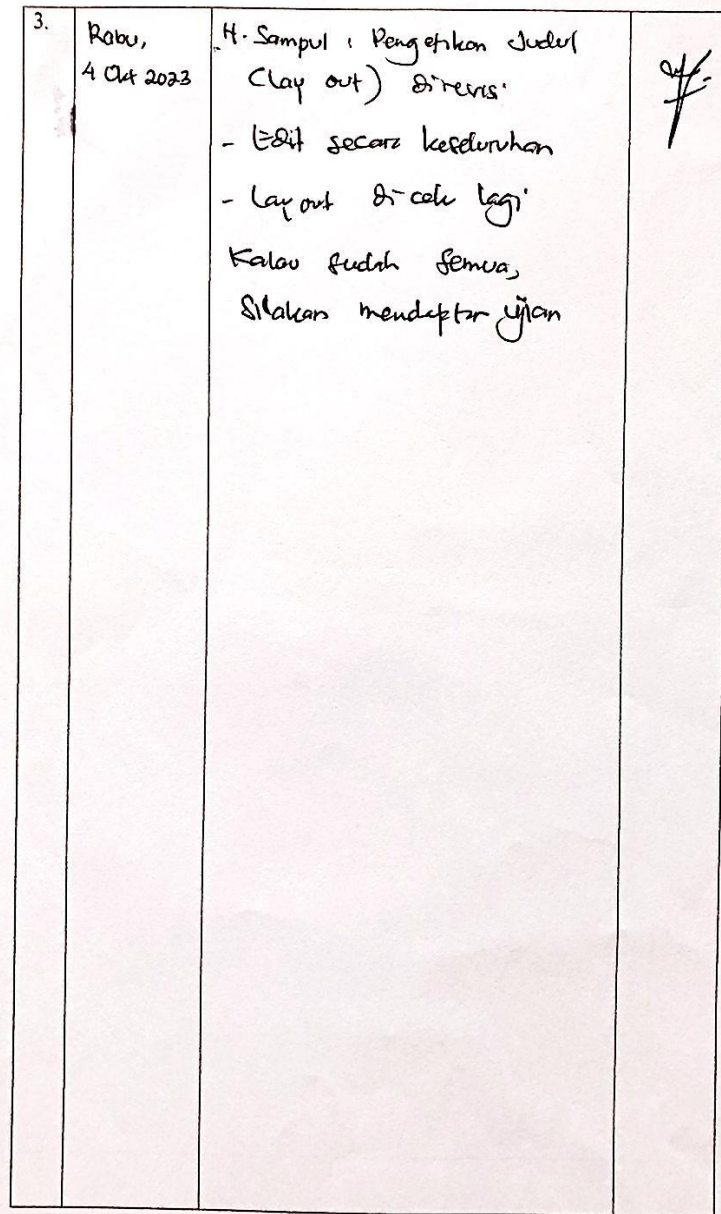 3.
Rabu,
4 Okt 2023
H. Sampul : Pengetikan Judul
(Lay out) direvisi
- Edit secara keseluruhan
- Lay out di cek lagi
Kalau sudah semua,
Silakan mendaptar ujian